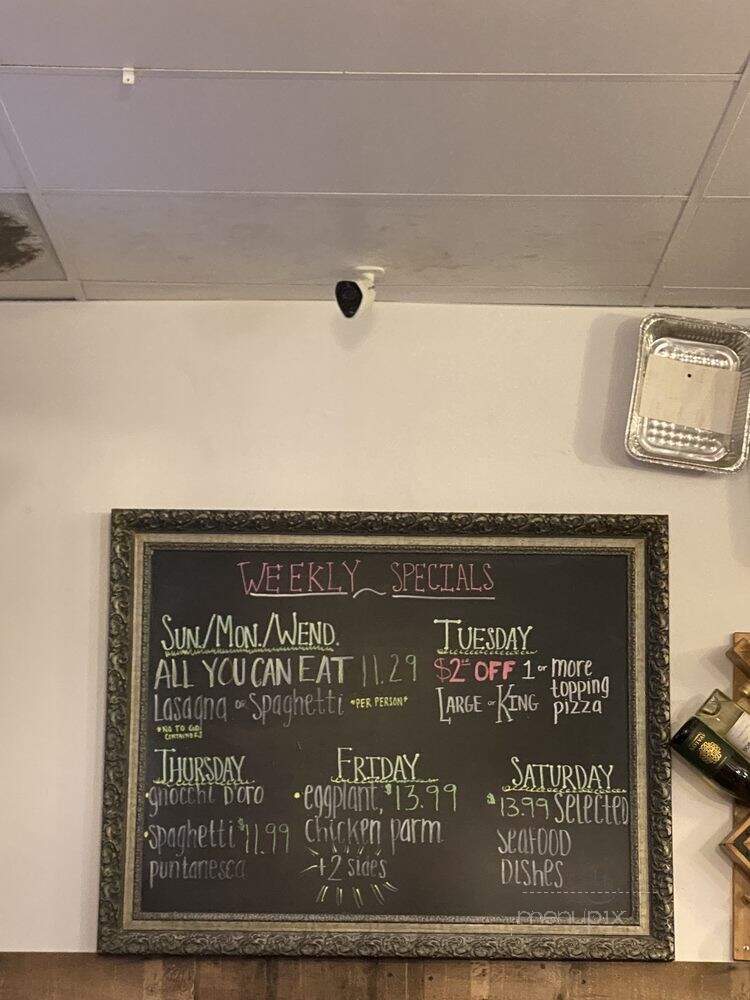 WEEKLY SPECIALS
SUN/MON./WEND.
ALL YOU CAN EAT 11.29
Lasagna or Spaghetti *PER PERSON*
*NO TO GO
CONTAINERS
TUESDAY
$2 OFF 1 or more
topping
LARGE or KING pizza
THURSDAY
gnocchi D'oro
spaghetti $11.99
puntanesca
FRIDAY
eggplant, $13.99
chicken parm
+2 sides
SATURDAY
13.99 Selected
seafood
Dishes
menupix